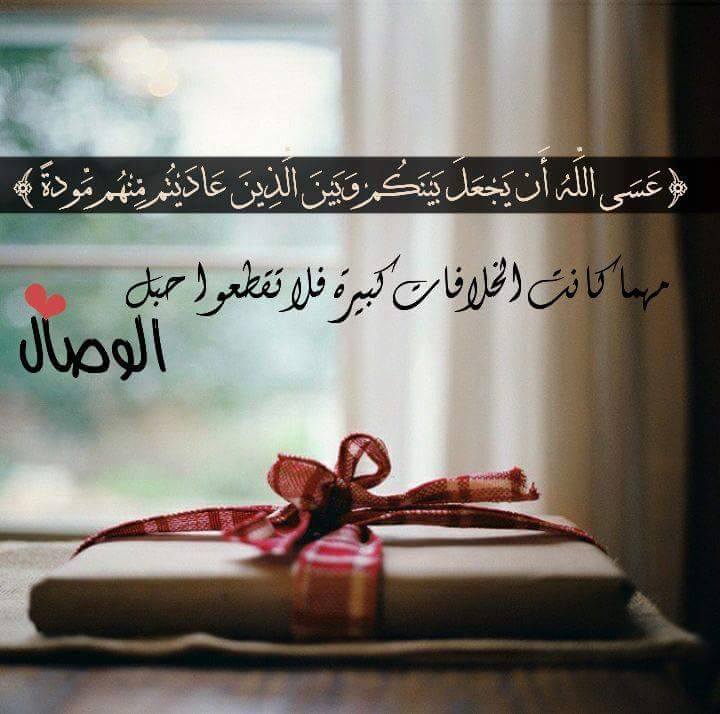 ﴿ عَسَى اللَّهُ أَن يَجْعَلَ بَيْنَكُمْ وَبَيْنَ الَّذِينَ عَادَيْتُم مِّنْهُم مَّوَدَّةً ﴾
مهما كانت الخلافات كبيرة فلا تقطعوا حبل
الوصال